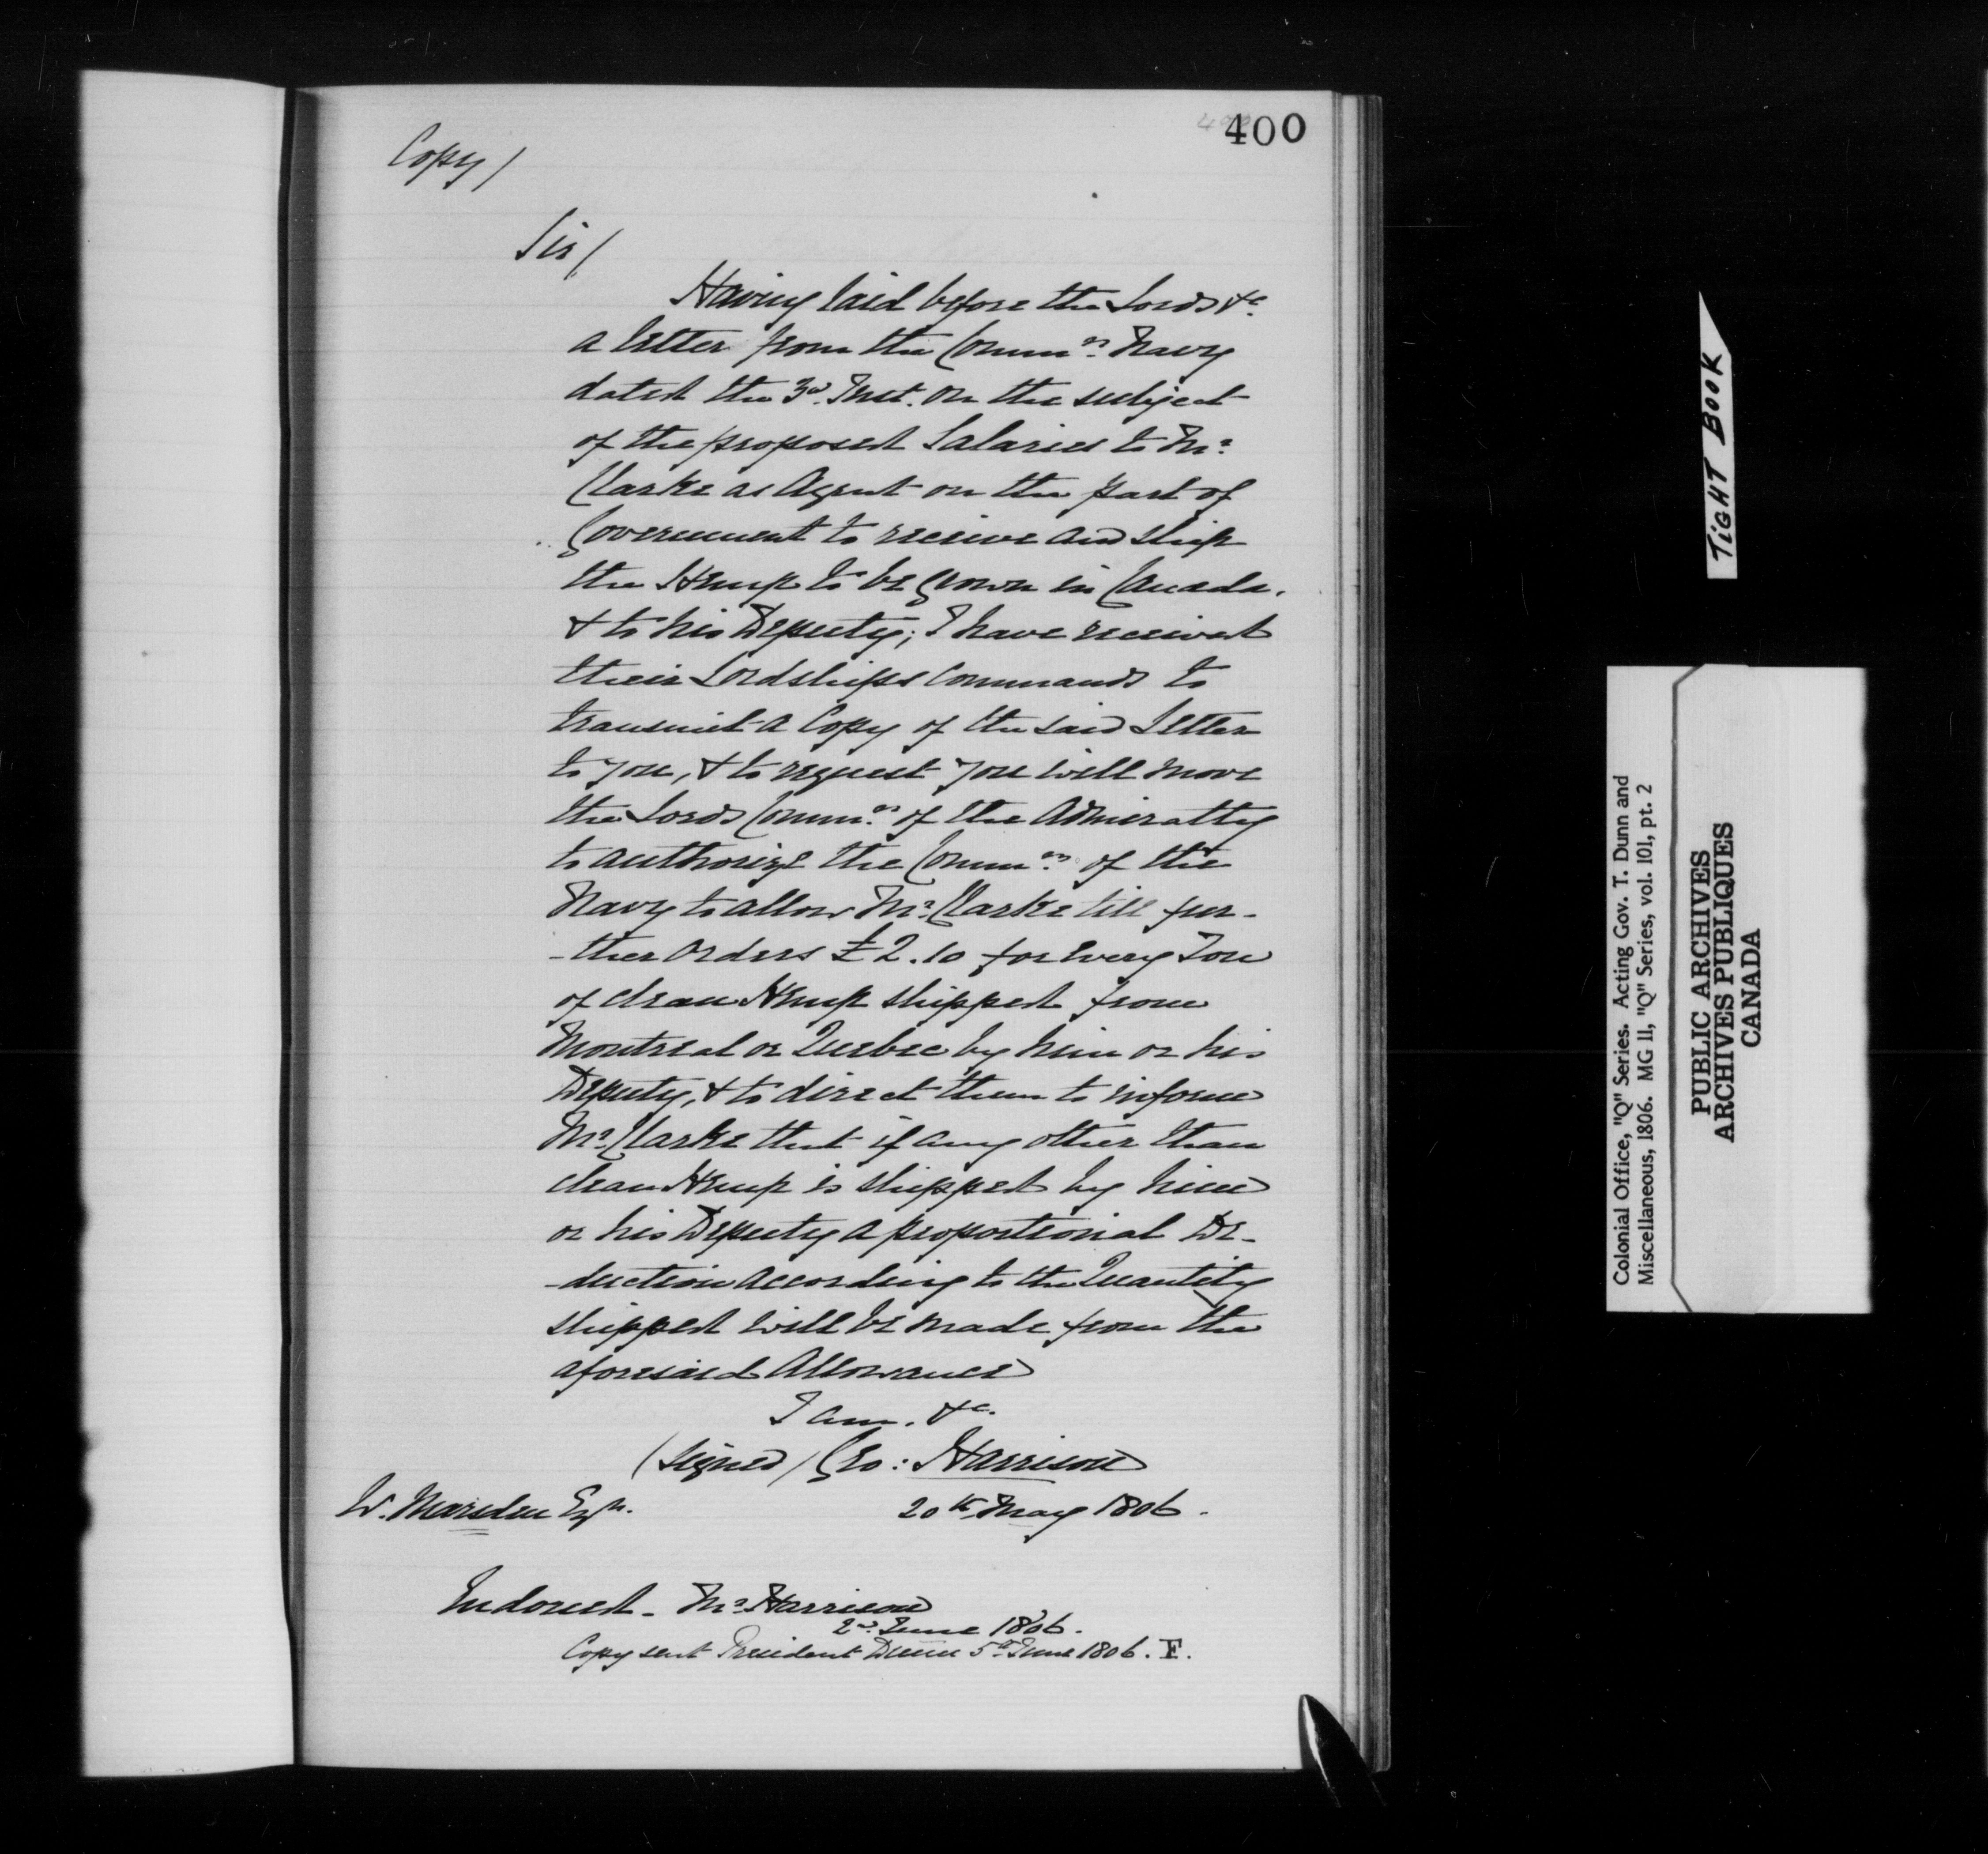 400
Copy /
Sir /
Having laid before the Lords &c.
a letter from the Commrs. Navy
dated the 3d. Inst. on the subject
of the proposed Salaries to Mr.
Clarke as Agent on the part of
Government to receive and ship
the Hemp to be Grown in Canada,
& to his Deputy; I have received
their Lordships Commands to
transmit a Copy of the said Letter
to you, & to request you will move
the Lords Commrs. of the Admiralty
to authorize the Commrs. of the
Navy to allow Mr. Clarke till fur-
-ther Orders £2.10 for every Ton
of clean Hemp shipped from
Montreal or Quebec by him or his
Deputy, & to direct them to inform
Mr. Clarke that if any other than
clean Hemp is shipped by him
or his Deputy a proportional De-
-duction according to the Quantity
shipped will be made from the
aforesaid Allowance
I am. &c.
(signed) Geo: Harrison
W. Marsden Esqr. 20th May 1806.
Indorsed - Mr. Harrison
2d. June 1806.
Copy sent President Dunn 5th June 1806. F.
TIGHT BOOK
Colonial Office, "Q" Series. Acting Gov. T. Dunn and
Miscellaneous, 1806. MG 11, "Q" Series, vol. 101, pt. 2
PUBLIC ARCHIVES
ARCHIVES PUBLIQUES
CANADA